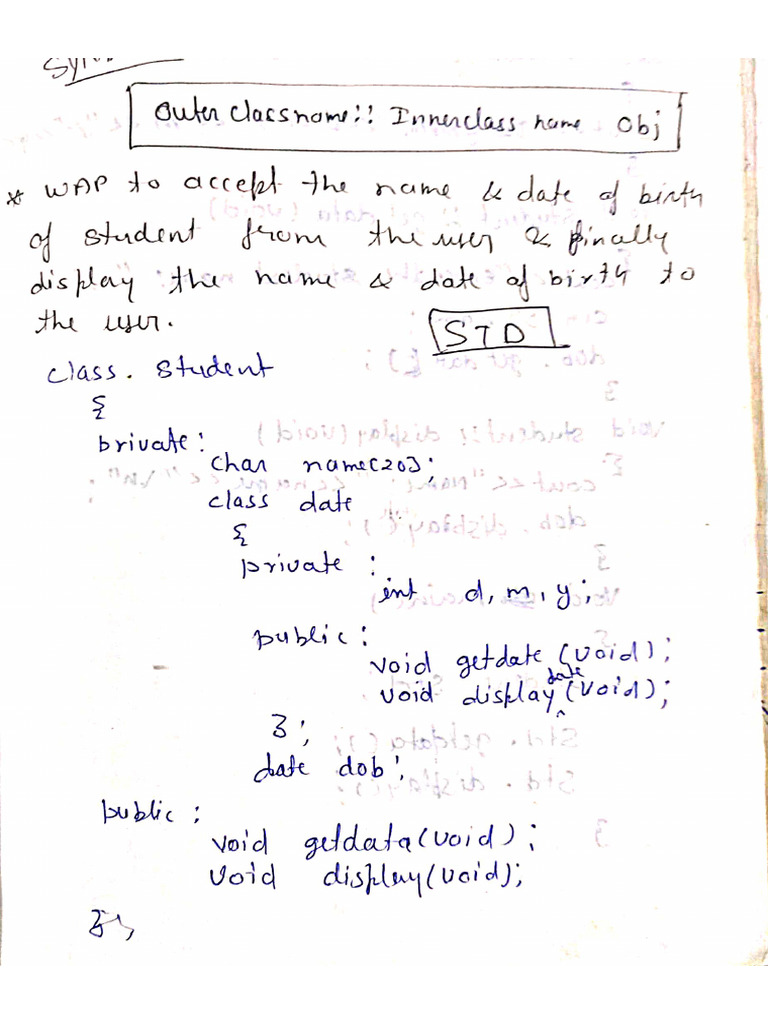 Outer classname:: Innerclass name obj
* WAP to accept the name & date of birth
of student from the user & finally
display the name & date of birth to
the user.
STD
class. student
{
private:
char name[20];
class date
{
private :
int d, m, y;
public:
void getdate (void);
void displaydate (void);
};
date dob;
public:
void getdata(void);
void display(void);
};